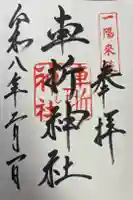 一陽来復
奉拝
車折神社
車折神社
令和八年二月一日